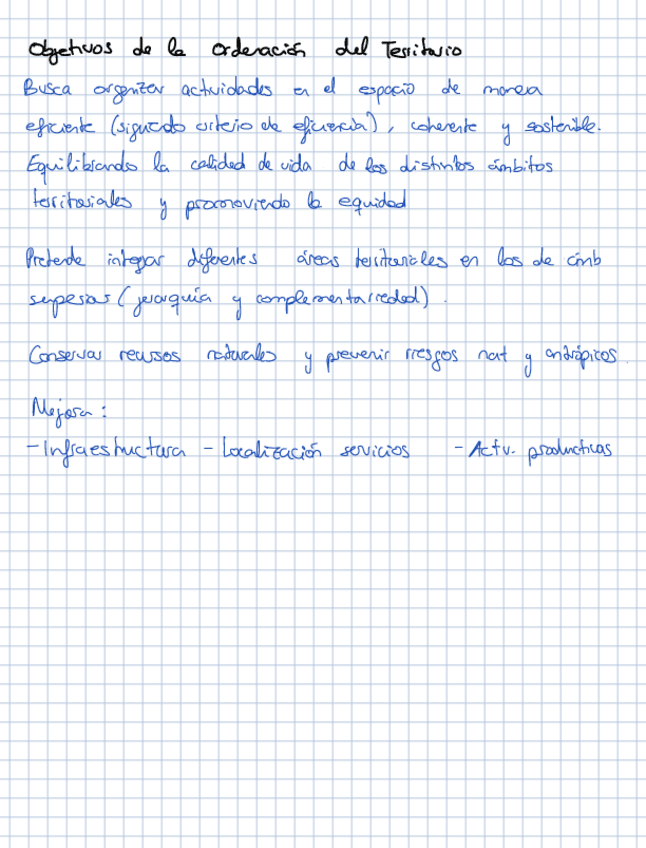 Objetivos de la Ordenación del Territorio
Busca organizar actividades en el espacio de manera
eficiente (siguiendo criterio de eficiencia), coherente y sostenible.
Equilibrando la calidad de vida de los distintos ámbitos
territoriales y promoviendo la equidad
Pretende integrar diferentes áreas territoriales en los de amb
(jerarquía y complementariedad).
Conservar recursos naturales y prevenir riesgos nat y antrópicos.
Mejora:
- Infraestructura - Localización servicios - Actv. productivas